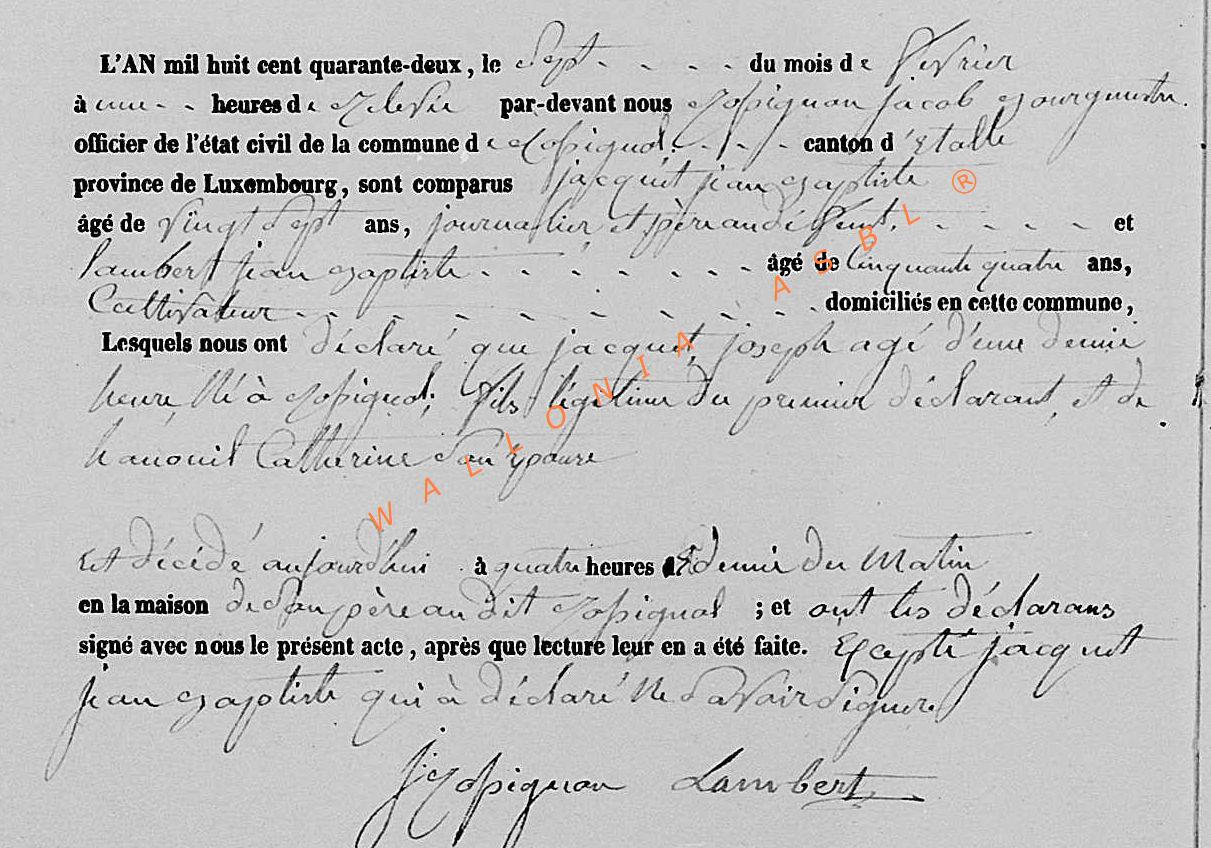 L'AN mil huit cent quarante-deux, le sept du mois de Fevrier
à une heures de relevée par-devant nous Rossignon jacob Bourgmestre.
officier de l'état civil de la commune de Rossignol. canton d'Etalle
province de Luxembourg, sont comparus jacquet jean Baptiste
âgé de vingt sept ans, journalier et père au défunt. et
Lambert jean Baptiste âgé de Cinquante quatre ans,
Cultivateur domiciliés en cette commune,
Lesquels nous ont déclaré que jacquet joseph agé d'une demie
heure Né à Rossignol; fils légitime du premier déclarant, et de
hanouil Catherine son épouse
Est décédé aujourd'hui à quatre heures et demie du Matin
en la maison de son père au dit Rossignol ; et ont les déclarans
signé avec nous le présent acte, après que lecture leur en a été faite. Excepté jacquet
jean Baptiste qui à déclaré Ne Savoir Signer
j. Rossignon Lambert
WALLONIA ASBL ®